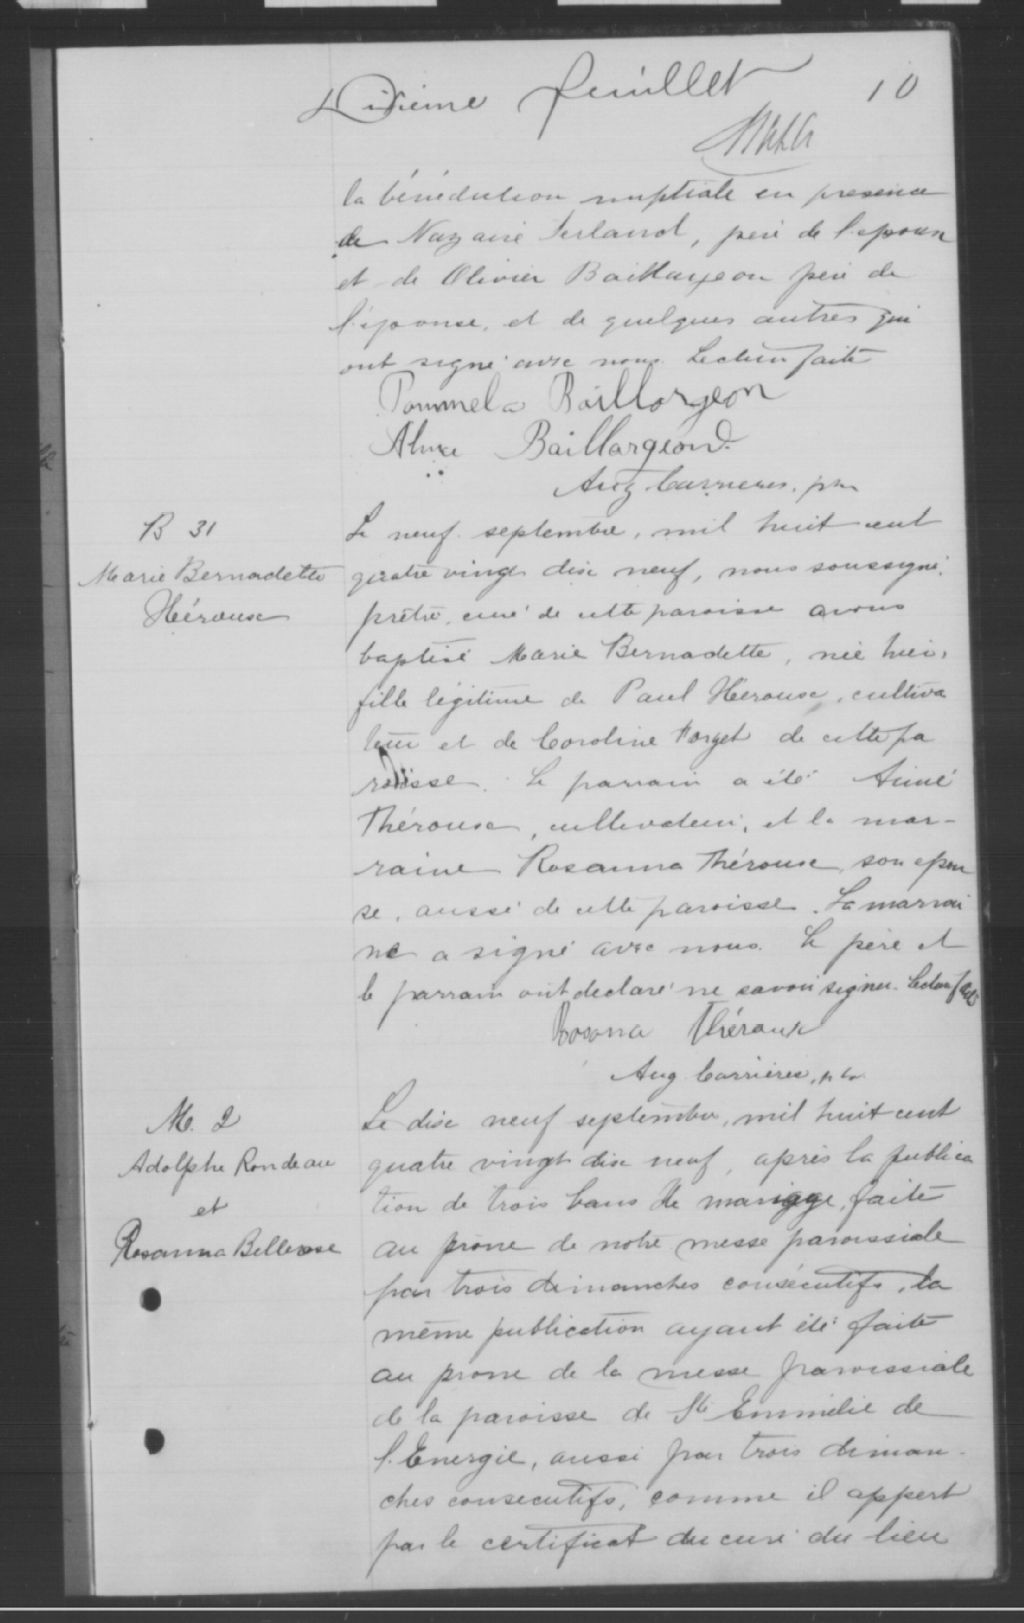 Dixième feuillet 10
la bénédiction nuptiale en presence
de Nazaire Ferland, père de l'epoux
et de Olivier Baillargeon père de
l'épouse, et de quelques autres qui
ont signé avec nous. Lecture faite
Pommela Baillorgeon
Alma Baillargeon
Aug. Carrieres, ptre
B 31
Marie Bernadette
Hérouse
Le neuf septembre, mil huit cent
quatre vingt dix neuf, nous soussigné,
prêtre, curé de cette paroisse avons
baptisé Marie Bernadette, née hier,
fille légitime de Paul Hérouse, cultiva
teur et de Caroline Forget de cette pa
roisse. Le parrain a été Aimé
Thérouse, cultivateur, et la mar-
raine Rosanna Thérouse, son epou
se, aussi de cette paroisse. La marrai
ne a signé avec nous. Le père et
le parrain ont declaré ne savoir signer. Lecture faite
Rosona Théroux
Aug. Carrières, ptr
M. 2
Adolphe Rondeau
et
Rosanna Bellerose
Le dix neuf septembre, mil huit cent
quatre vingt dix neuf, après la publica
tion de trois bans de mariage, faite
au prone de notre messe paroissiale
par trois dimanches consécutifs, la
même publication ayant été faite
au prone de la messe paroissiale
de la paroisse de Ste Emmélie de
l'Energie, aussi par trois diman-
ches consecutifs, comme il appert
par le certificat du curé du lieu